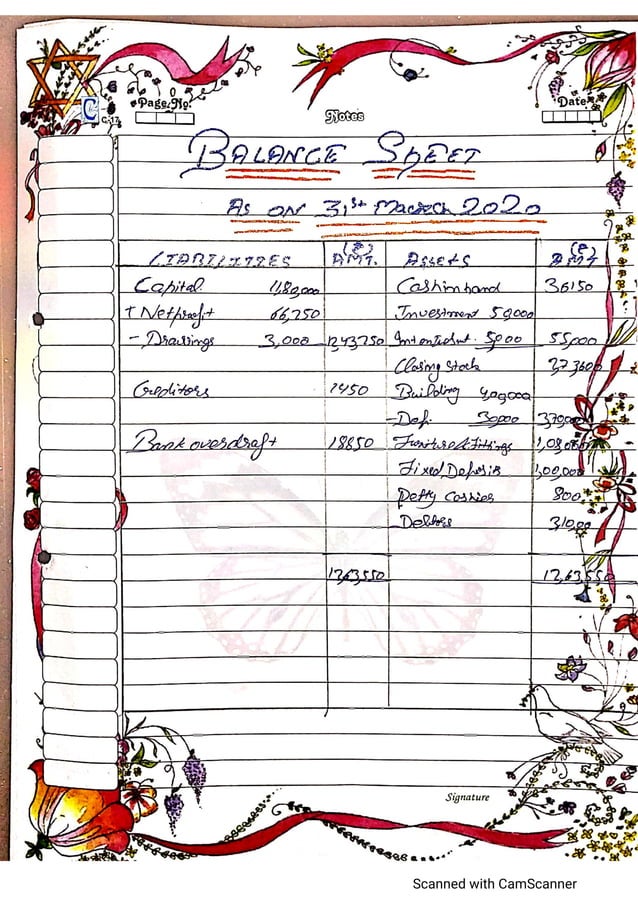 C
C-17
Page No.
Notes
Date
BALANCE SHEET
As ON 31st March 2020
LIABILITIES (₹) AMT. ASSETS (₹) AMT
Capital 11,80,000 Cash in hand 36150
+ Net profit 66,750 Investment 50000
- Drawings 3,000 12,43,750 5,000 55,000
Closing stock
Creditors 1450 Building 4,00,000
- Dep. 30,000 3,70,000
Bank overdraft 18850 Furniture & Fittings
Fixed Deposit 1,00,000
Petty Cashier 800
Debtors
12,63,550 12,63,550
Signature
Scanned with CamScanner